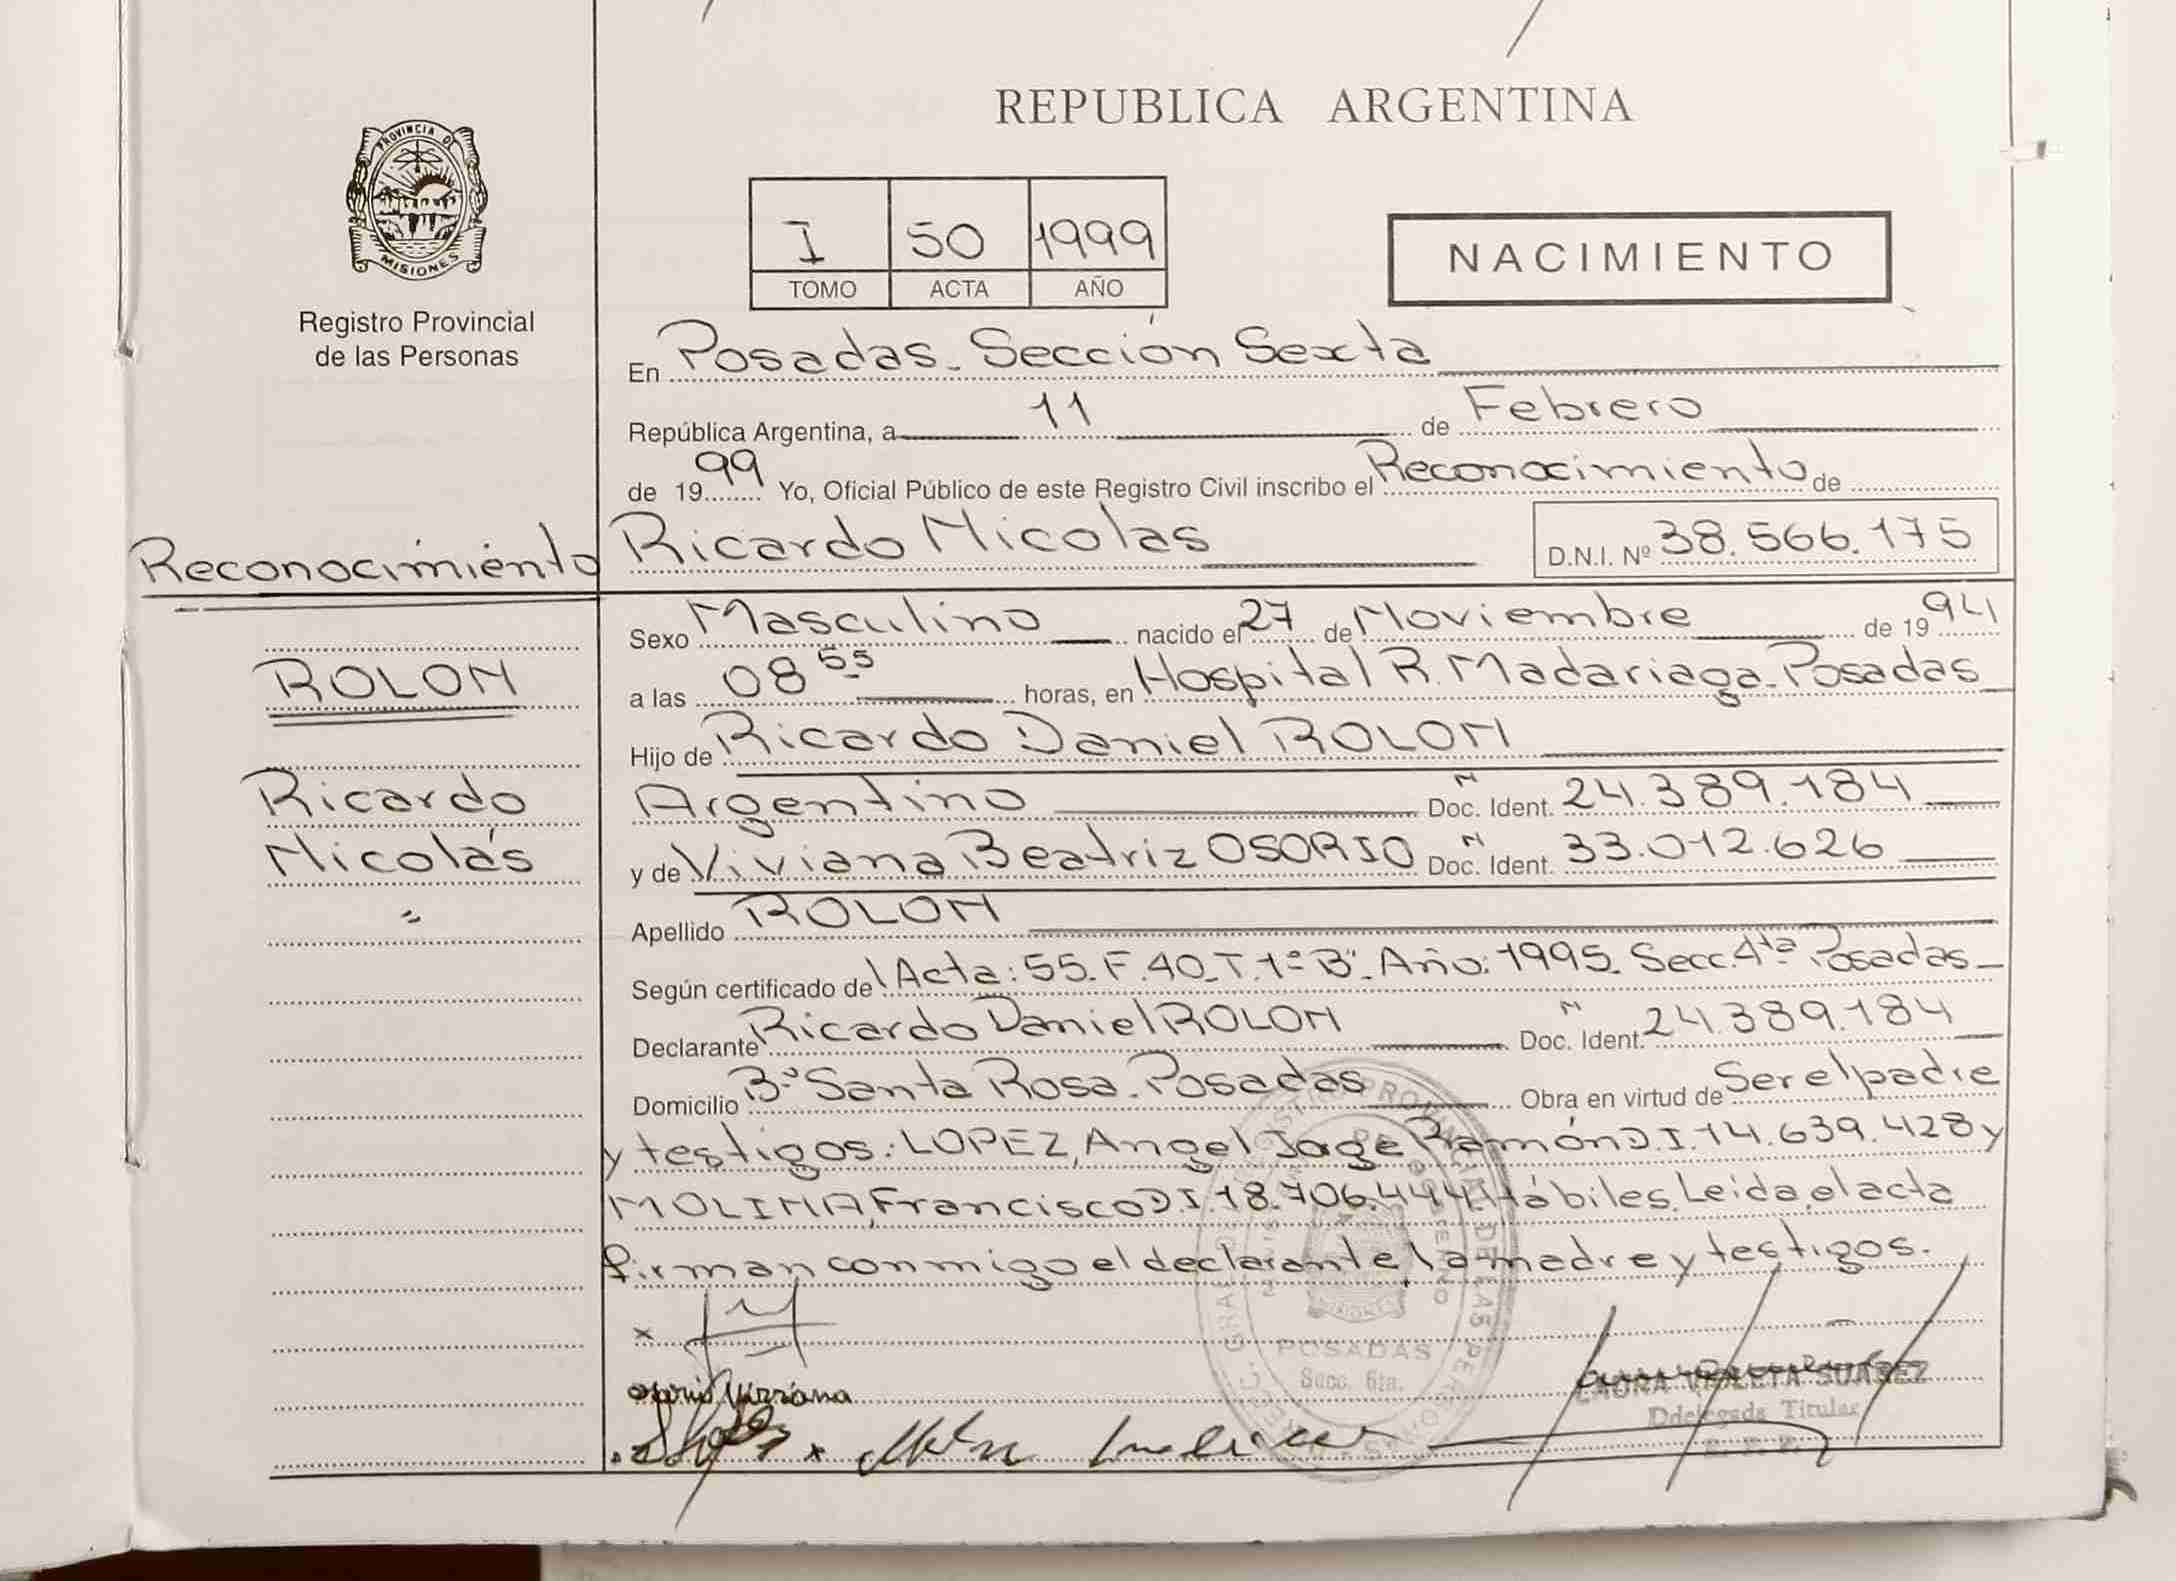 REPUBLICA ARGENTINA
PROVINCIA DE
MISIONES
Registro Provincial
de las Personas
I 50 1999
TOMO ACTA AÑO
NACIMIENTO
En Posadas. Sección Sexta
República Argentina, a 11 de Febrero
de 1999 Yo, Oficial Público de este Registro Civil inscribo el Reconocimiento de
Reconocimiento
Ricardo Nicolas D.N.I. Nº 38.566.175
Sexo Masculino nacido el 27 de Noviembre de 1994
a las 08 55 horas, en Hospital R. Madariaga. Posadas
Hijo de Ricardo Daniel ROLON
Argentino Doc. Ident. N 24.389.184
y de Viviana Beatriz OSORIO Doc. Ident. N 33.012.626
Apellido ROLON
Según certificado del Acta: 55. F. 40. T. 1º "B". Año: 1995. Secc. 4ta Posadas
Declarante Ricardo Daniel ROLON Doc. Ident. N 24.389.184
Domicilio Bº Santa Rosa. Posadas Obra en virtud de Ser el padre
y testigos: LOPEZ, Angel Jorge Ramón D.I. 14.639.428 y
MOLINA, Francisco D.I. 18.706.444. Hábiles. Leida el acta
firman conmigo el declarante, la madre y testigos.
ROLON
Ricardo
Nicolás
POSADAS
Secc. 6ta.
LAURA VIOLETA SUAREZ
Ddelegada Titular